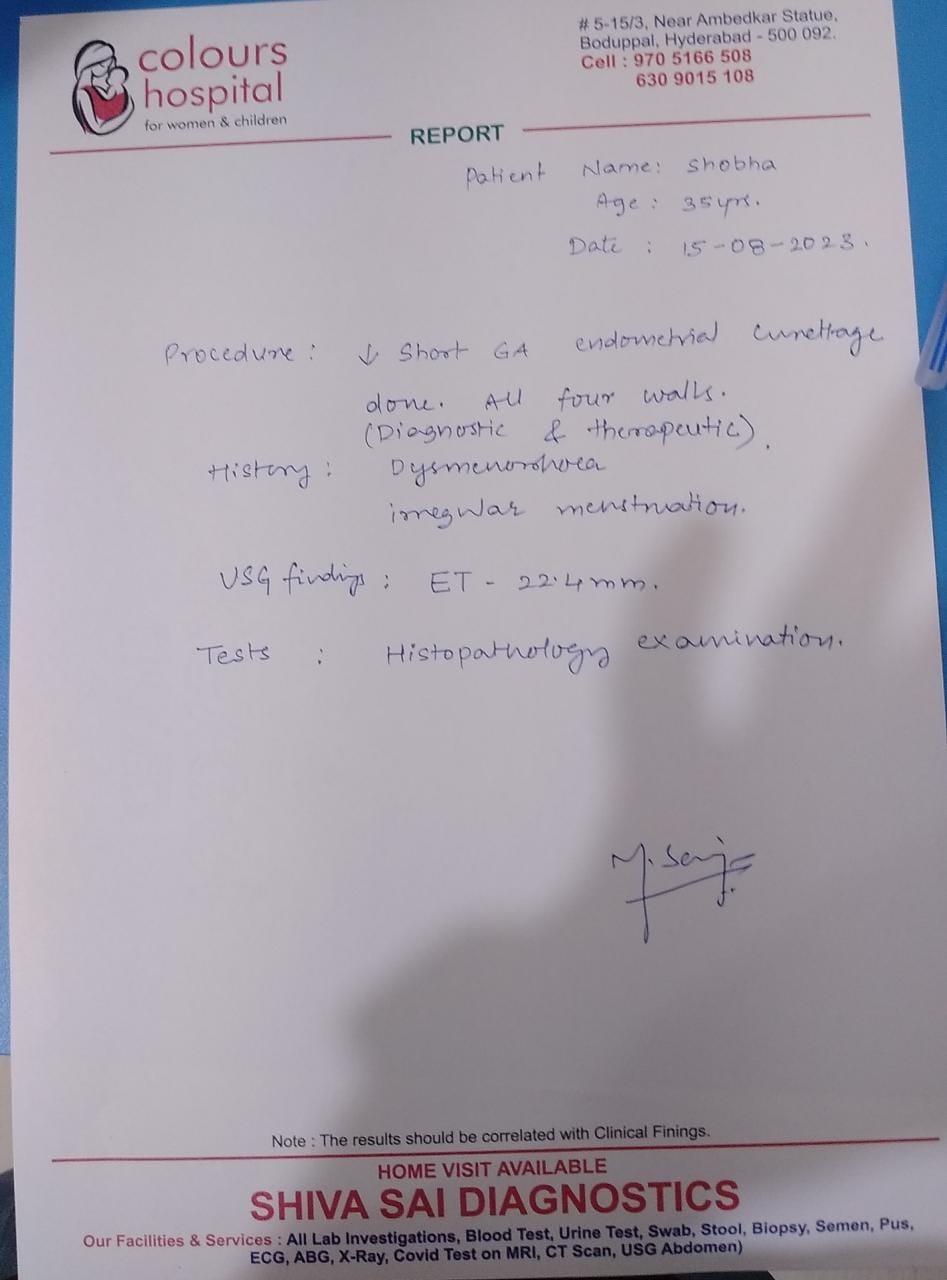 colours
hospital
for women & children
# 5-15/3, Near Ambedkar Statue,
Boduppal, Hyderabad - 500 092.
Cell : 970 5166 508
630 9015 108
REPORT
Patient Name: Shobha
Age : 35 yrs.
Date : 15-08-2023.
Procedure : ↓ Short GA endometrial curettage
done. All four walls.
(Diagnostic & therapeutic).
History : Dysmenorrhoea
irregular menstruation.
USG findings : ET - 22.4 mm.
Tests : Histopathology examination.
Note : The results should be correlated with Clinical Finings.
HOME VISIT AVAILABLE
SHIVA SAI DIAGNOSTICS
Our Facilities & Services : All Lab Investigations, Blood Test, Urine Test, Swab, Stool, Biopsy, Semen, Pus,
ECG, ABG, X-Ray, Covid Test on MRI, CT Scan, USG Abdomen)